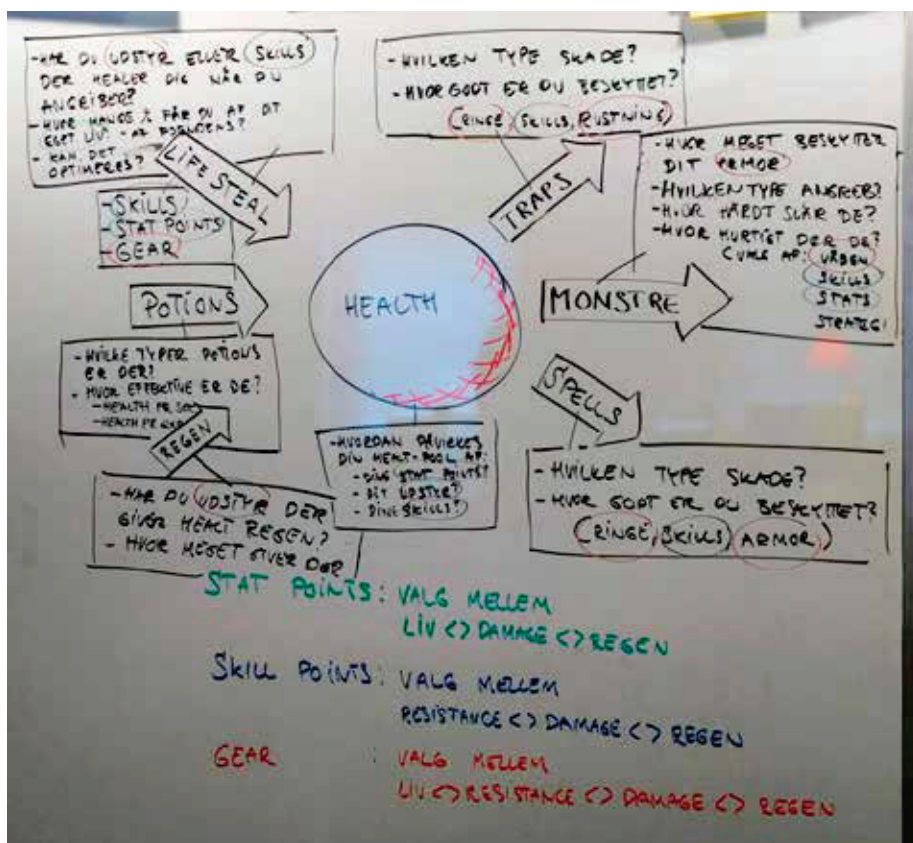 - HAR DU UDSTYR ELLER SKILLS
DER HEALER DIG NÅR DU
ANGRIBER?
- HVOR MANGE % FÅR DU AF DIT
EGET LIV - AF FJENDENS?
- KAN DET
OPTIMERES?
LIFE STEAL
- SKILLS
- STAT POINTS
- GEAR
POTIONS
- HVILKE TYPER POTIONS
ER DER?
- HVOR EFFEKTIVE ER DE?
- HEALTH PR SEC
- HEALTH PR
REGEN
- HAR DU UDSTYR DER
GIVER HEALT REGEN?
- HVOR MEGET GIVER DER
HEALTH
- HVORDAN PÅVIRKES
DIN HEALT-POOL AF:
- DINE STAT POINTS?
- DIT UDSTYR?
- DINE SKILLS?
- HVILKEN TYPE SKADE?
- HVOR GODT ER DU BESKYTTET?
(RINGE, SKILLS, RUSTNING)
TRAPS
- HVOR MEGET BESKYTTER
DIT ARMOR
- HVILKEN TYPE ANGREB?
- HVOR HÅRDT SLÅR DE?
- HVOR HURTIGT DØR DE?
AF: VÅBEN
SKILLS
STATS
STRATEGI
MONSTRE
SPELLS
- HVILKEN TYPE SKADE?
- HVOR GODT ER DU BESKYTTET?
(RINGE, SKILLS, ARMOR)
STAT POINTS: VALG MELLEM
LIV <> DAMAGE <> REGEN
SKILL POINTS: VALG MELLEM
RESISTANCE <> DAMAGE <> REGEN
GEAR : VALG MELLEM
LIV <> RESISTANCE <> DAMAGE <> REGEN